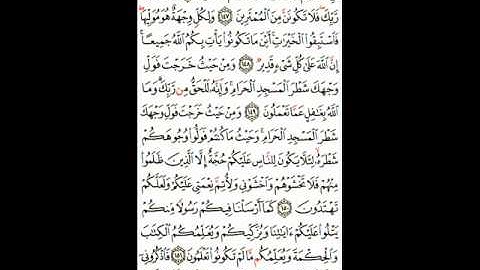 رَبِّكَ فَلَا تَكُونَنَّ مِنَ الْمُمْتَرِينَ ١٤٧ وَلِكُلٍّ وِجْهَةٌ هُوَ مُوَلِّيهَا
فَاسْتَبِقُوا الْخَيْرَاتِ أَيْنَ مَا تَكُونُوا يَأْتِ بِكُمُ اللَّهُ جَمِيعًا
إِنَّ اللَّهَ عَلَىٰ كُلِّ شَيْءٍ قَدِيرٌ ١٤٨ وَمِنْ حَيْثُ خَرَجْتَ فَوَلِّ
وَجْهَكَ شَطْرَ الْمَسْجِدِ الْحَرَامِ وَإِنَّهُ لَلْحَقُّ مِن رَّبِّكَ وَمَا
اللَّهُ بِغَافِلٍ عَمَّا تَعْمَلُونَ ١٤٩ وَمِنْ حَيْثُ خَرَجْتَ فَوَلِّ وَجْهَكَ
شَطْرَ الْمَسْجِدِ الْحَرَامِ وَحَيْثُ مَا كُنتُمْ فَوَلُّوا وُجُوهَكُمْ
شَطْرَهُ لِئَلَّا يَكُونَ لِلنَّاسِ عَلَيْكُمْ حُجَّةٌ إِلَّا الَّذِينَ ظَلَمُوا
مِنْهُمْ فَلَا تَخْشَوْهُمْ وَاخْشَوْنِي وَلِأُتِمَّ نِعْمَتِي عَلَيْكُمْ وَلَعَلَّكُمْ
تَهْتَدُونَ ١٥٠ كَمَا أَرْسَلْنَا فِيكُمْ رَسُولًا مِّنكُمْ
يَتْلُوا عَلَيْكُمْ آيَاتِنَا وَيُزَكِّيكُمْ وَيُعَلِّمُكُمُ الْكِتَابَ
وَالْحِكْمَةَ وَيُعَلِّمُكُم مَّا لَمْ تَكُونُوا تَعْلَمُونَ ١٥١ فَاذْكُرُونِي